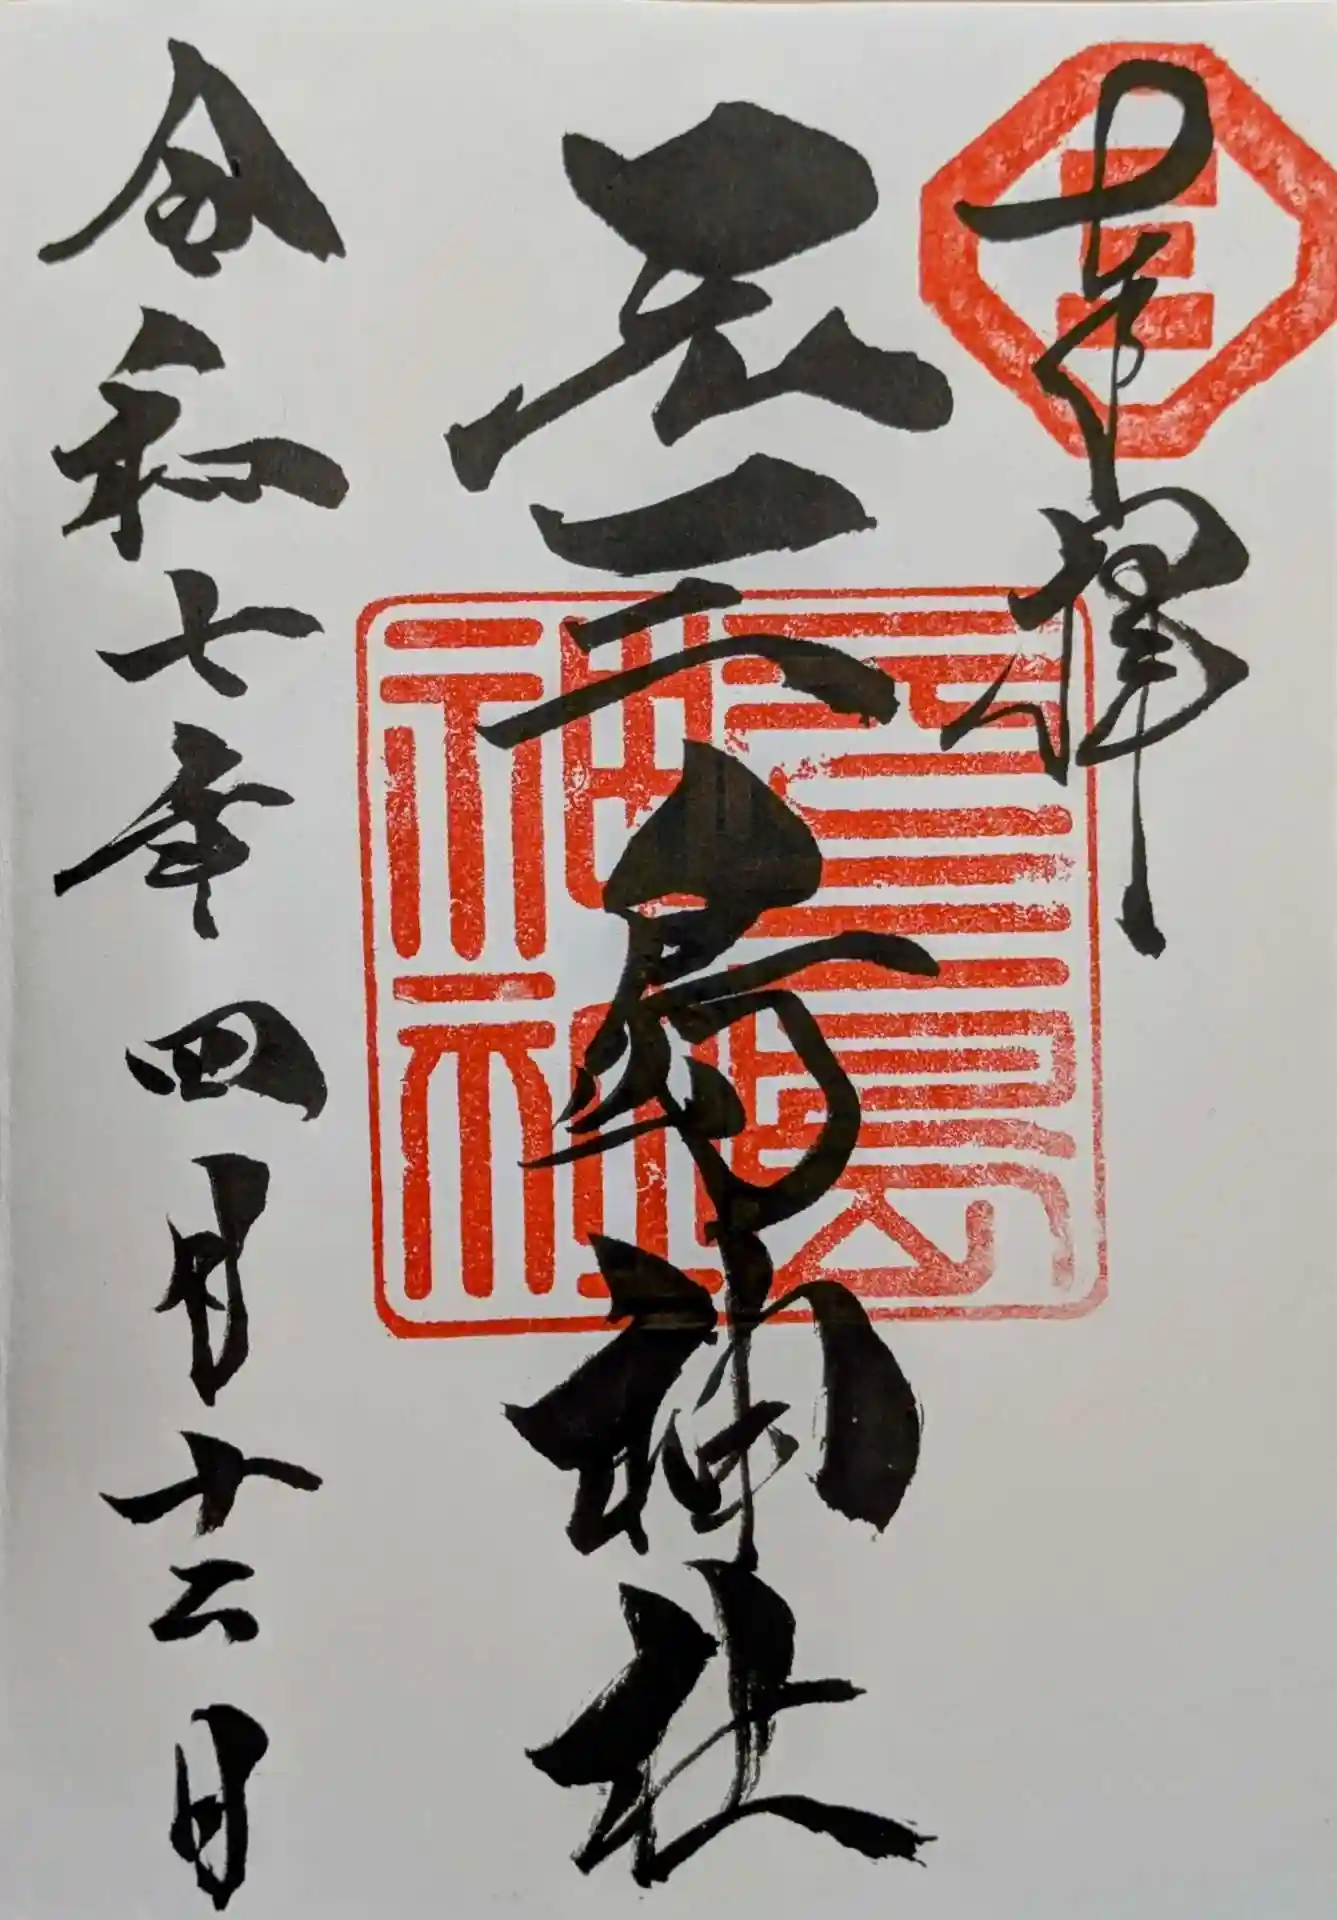 奉拝
元三島神社
令和七年四月十二日
三
元三島
神社